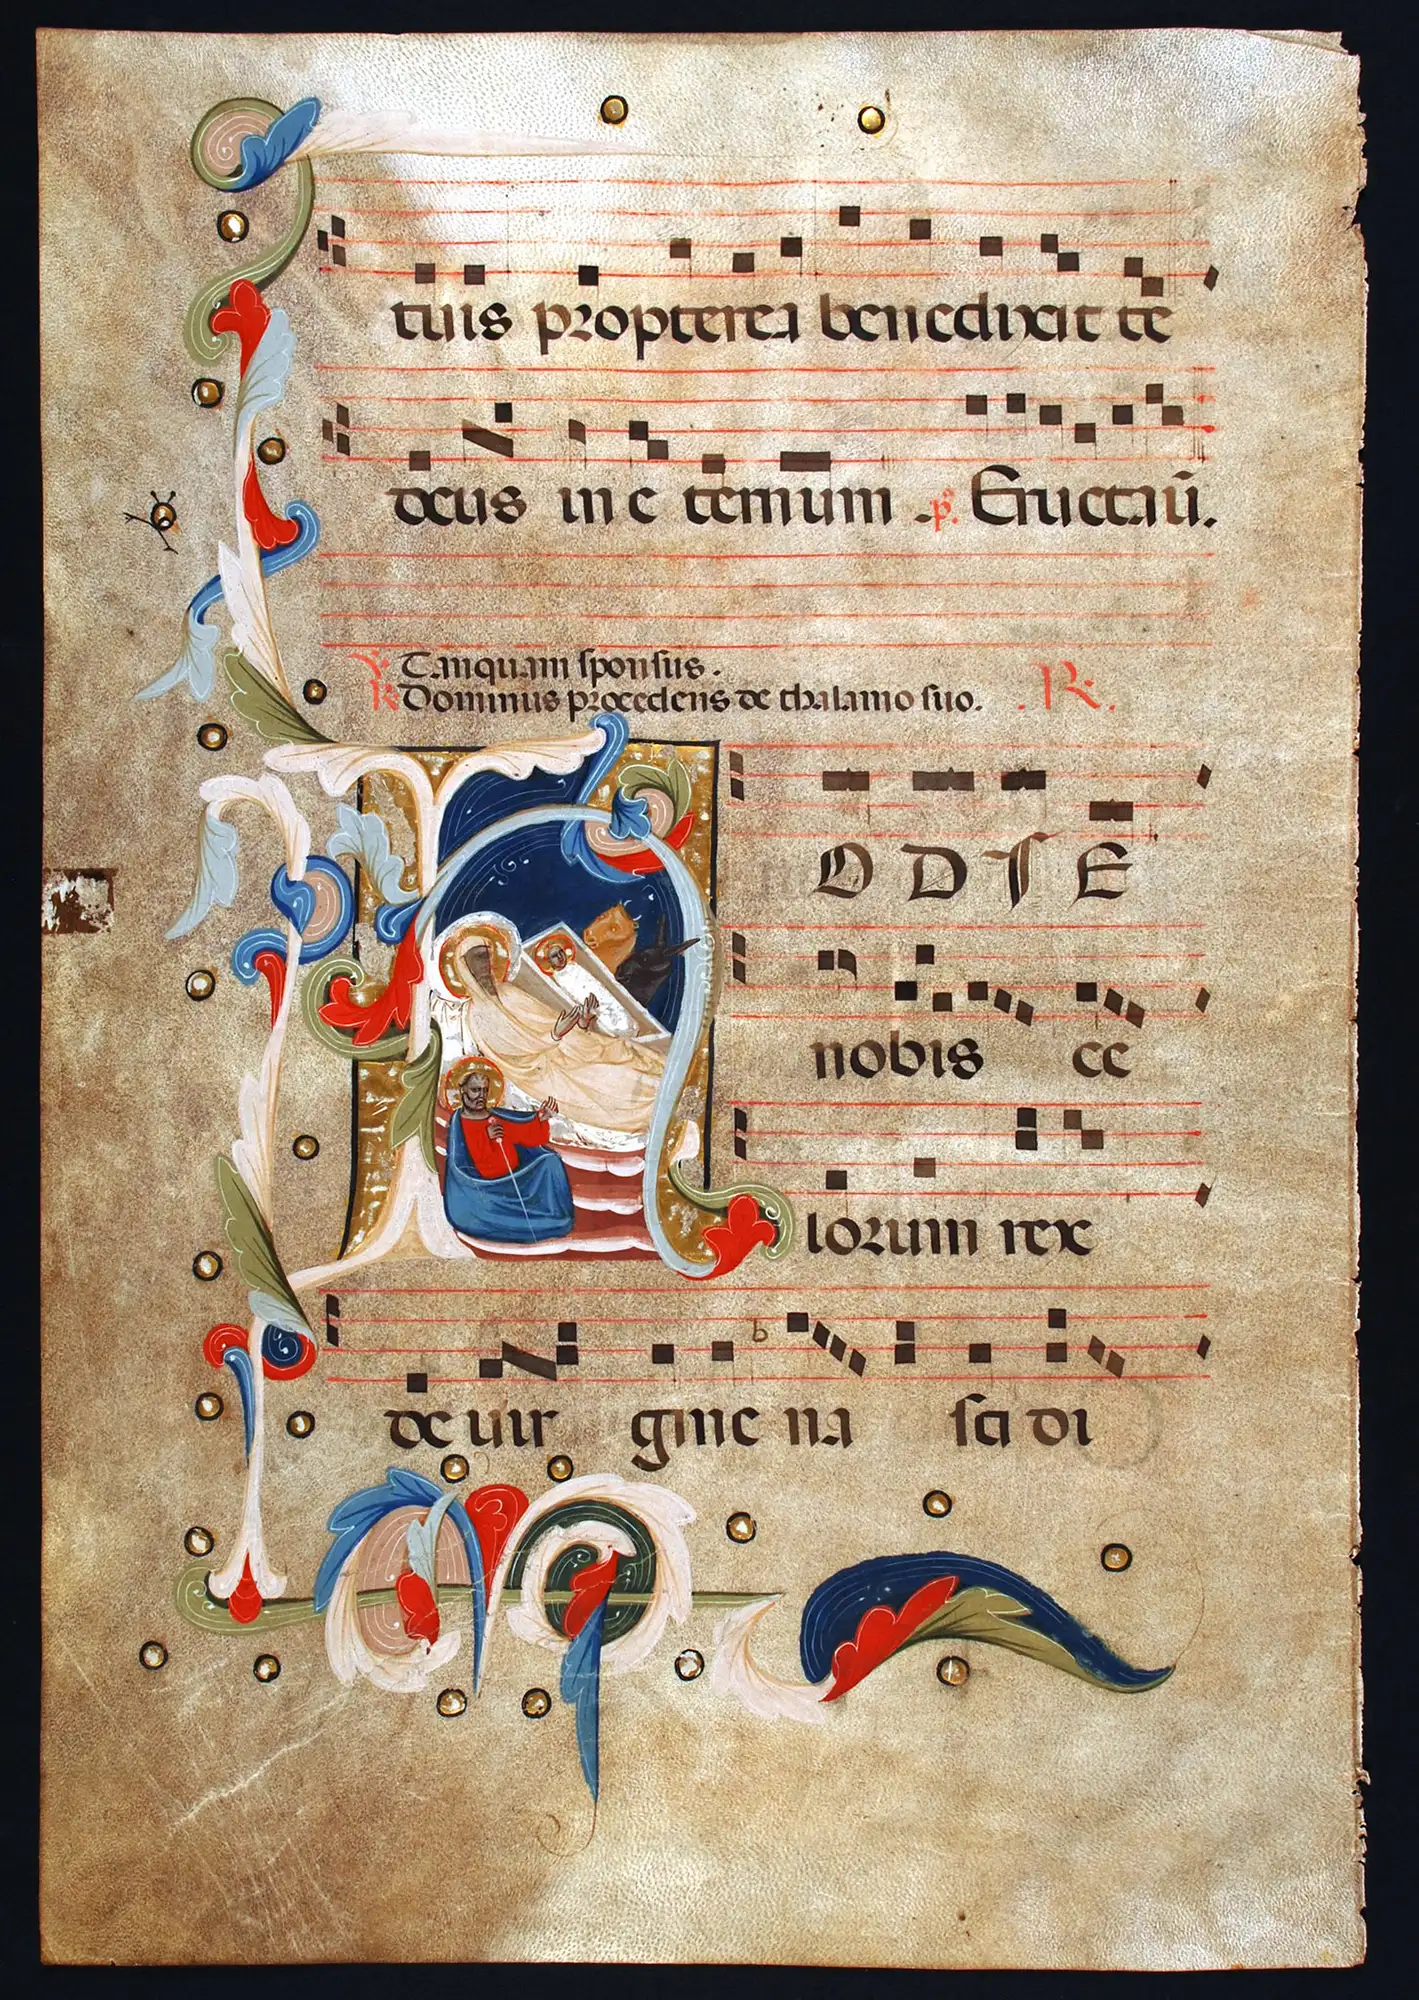 tiuis propterea benedixit te
deus in e ternum . ps. Eructaū.
V. Tanquam sponsus.
R. Dominus procedens de thalamo suo. . R.
H ODIE
nobis ce
lorum rex
de uir gine na sci di